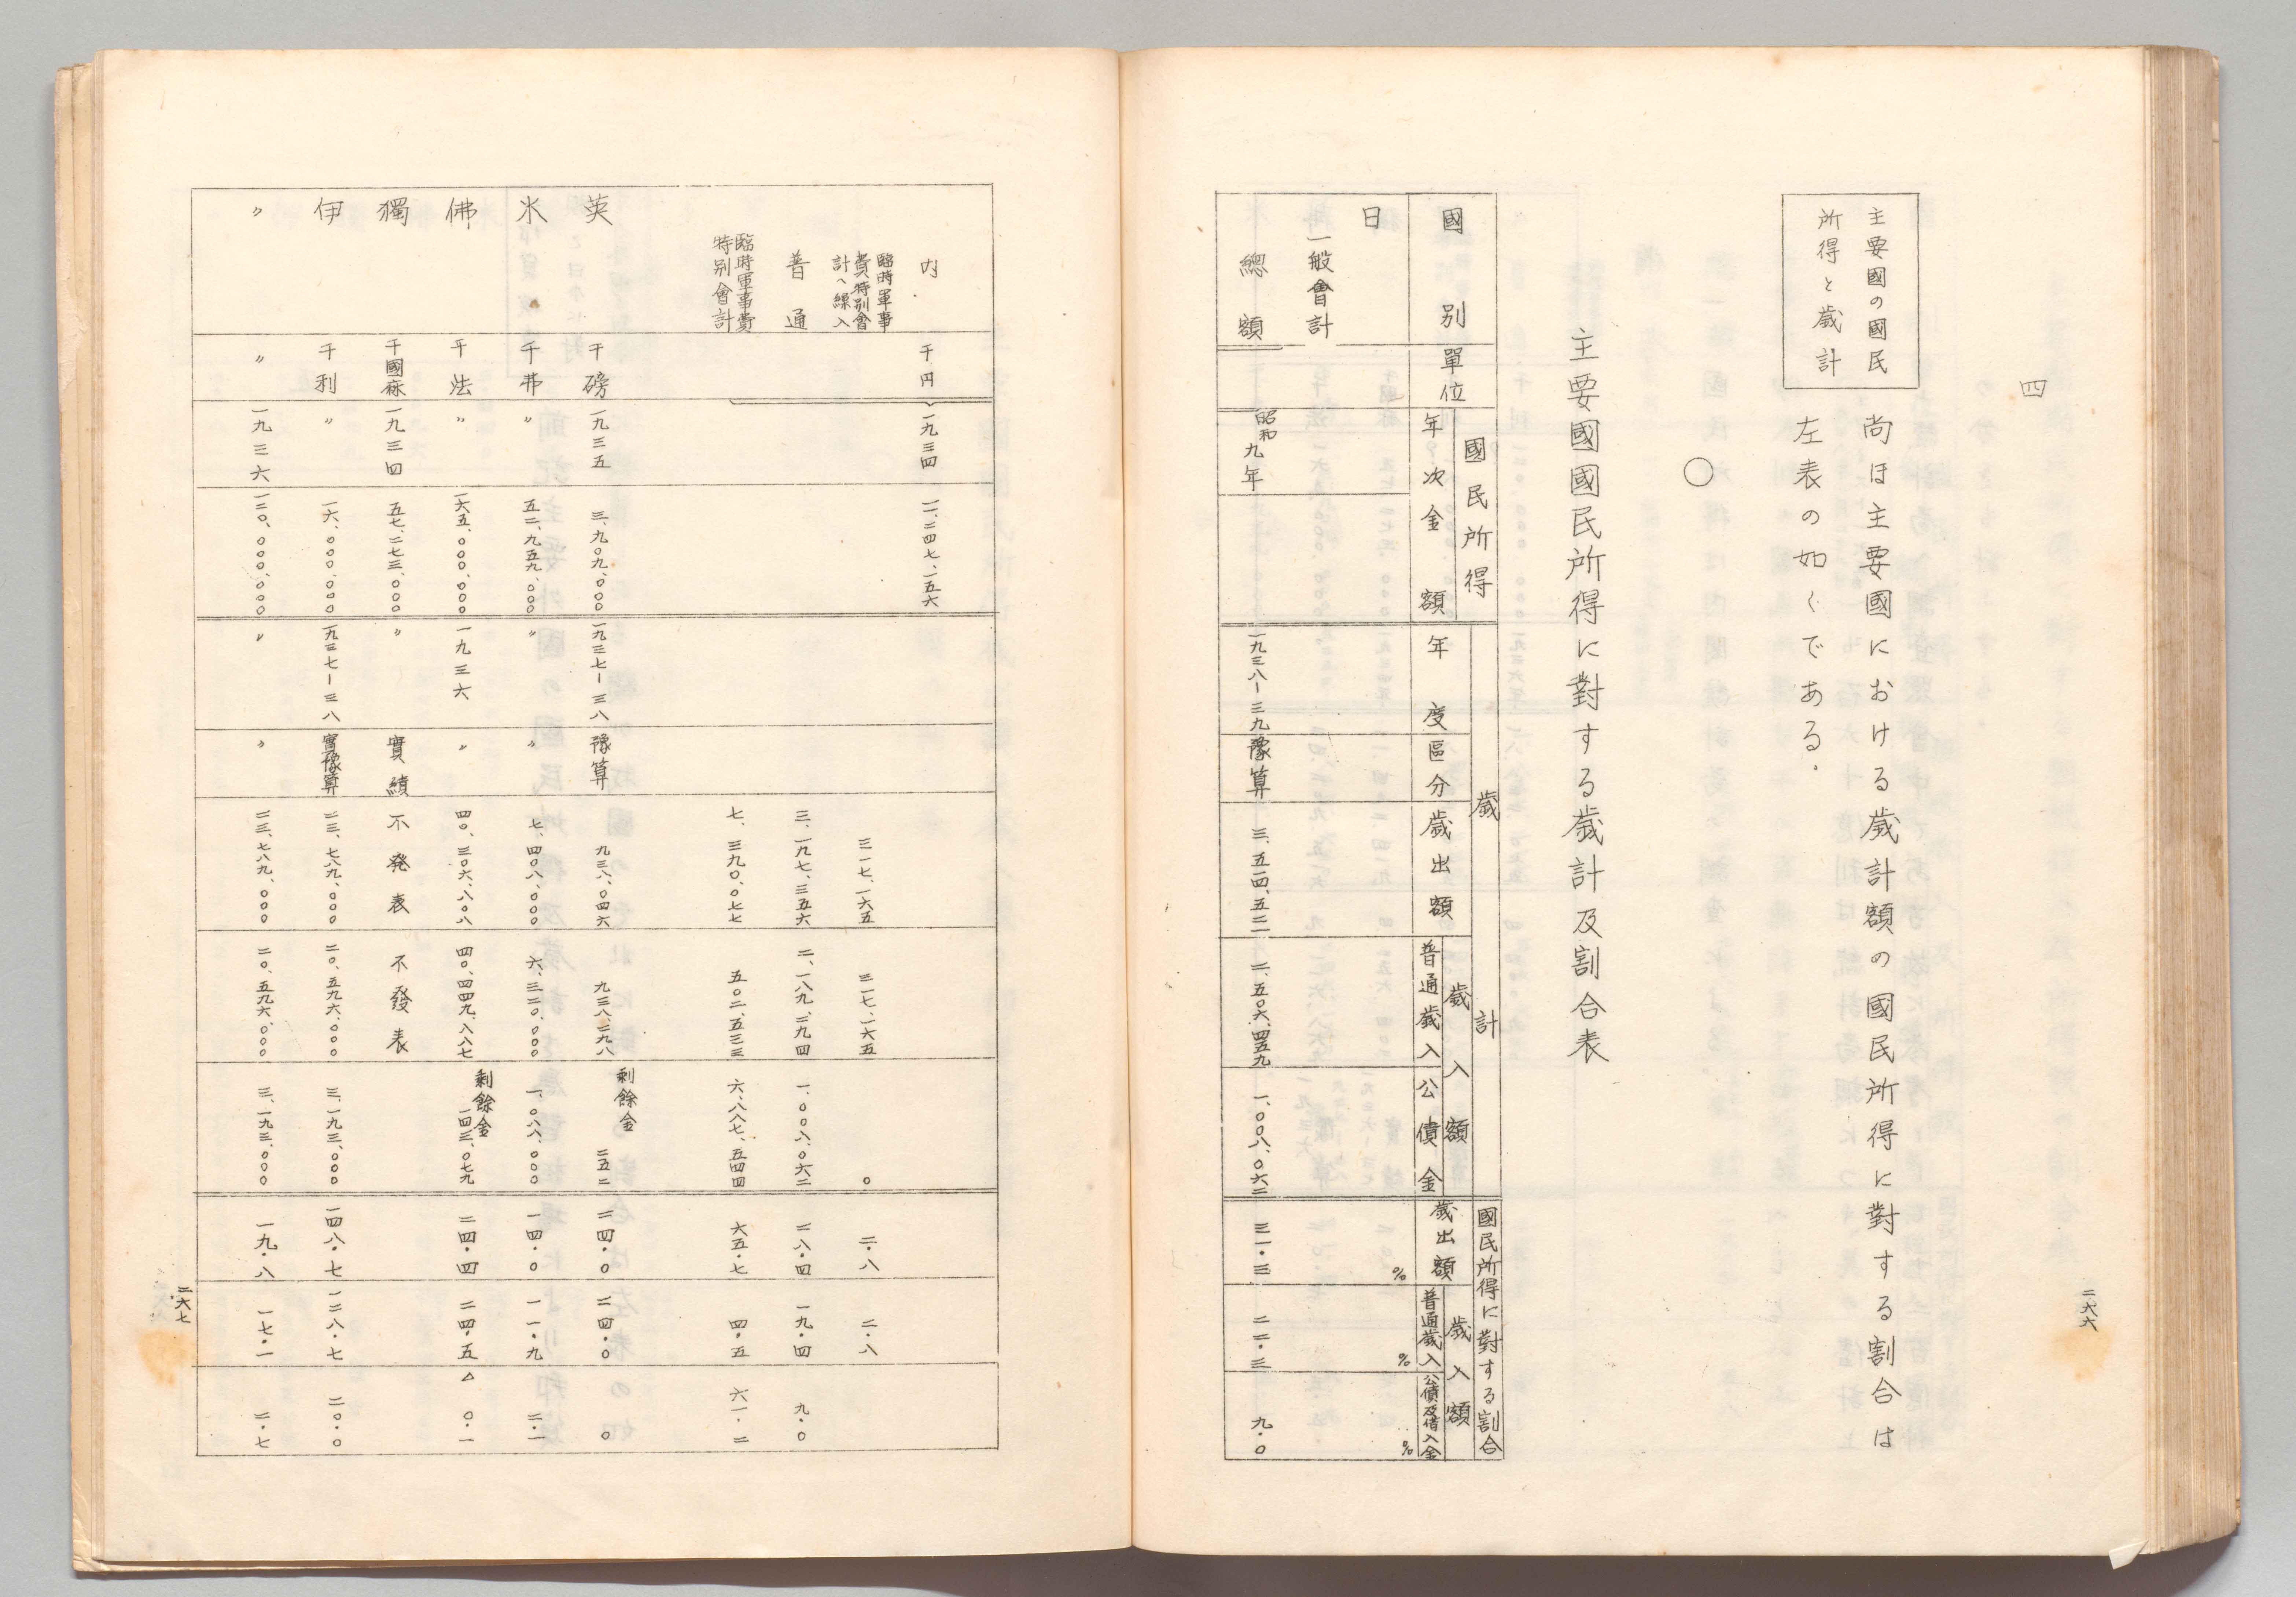 四
主要國の國民
所得と歳計
尚ほ主要國における歳計額の國民所得に對する割合は
左表の如くである.
○
主要國國民所得に對する歳計及割合表
國別 單位 國民所得 年次 金額 歳計 年度 區分 歳出額 歳入額 普通歳入 公債金 國民所得に對する割合 歳出額 歳入額 普通歳入 公債及借入金
日 % % %
一般會計
總額 昭和九年 一九三八ー三九 豫算 三、五一四、五二二 二、五〇六、四五九 一、〇〇八、〇六二 三一・三 二二・三 九・〇
二六六
内 千円 一九三四 一一、二四七、一五六
臨時軍事費特別會計へ繰入 三一七、一六五 三一七、一六五 〇 二・八 二・八
普通 三、一九七、三五六 二、一八九、二九四 一、〇〇八、〇六二 二八・四 一九・四 九・〇
臨時軍事費特別會計 七、三九〇、〇七七 五〇二、五三三 六、八八七、五四四 六五・七 四・五 六一・二
英 千磅 一九三五 三、九〇九、〇〇〇 一九三七ー三八 豫算 九三八、〇四六 九三八、二九八 剰餘金 二五二 二四・〇 二四・〇 〇
米 千弗 〃 五二、九五九、〇〇〇 〃 〃 七、四〇八、〇〇〇 六、三二〇、〇〇〇 一、〇八八、〇〇〇 一四・〇 一一・九 二・一
佛 千法 〃 一六五、〇〇〇、〇〇〇 一九三六 〃 四〇、三〇六、八〇八 四〇、四四九、八八七 剰餘金 一四三、〇七九 二四・四 二四・五 △〇・一
獨 千國麻 一九三四 五七、二七三、〇〇〇 〃 實績 不発表 不發表
伊 千利 〃 一六、〇〇〇、〇〇〇 一九三七ー三八 實豫算 二三、七八九、〇〇〇 二〇、五九六、〇〇〇 三、一九三、〇〇〇 一四八・七 一二八・七 二〇・〇
〃 〃 一九三六 一二〇、〇〇〇、〇〇〇 〃 〃 二三、七八九、〇〇〇 二〇、五九六、〇〇〇 三、一九三、〇〇〇 一九・八 一七・一 二・七
二六七